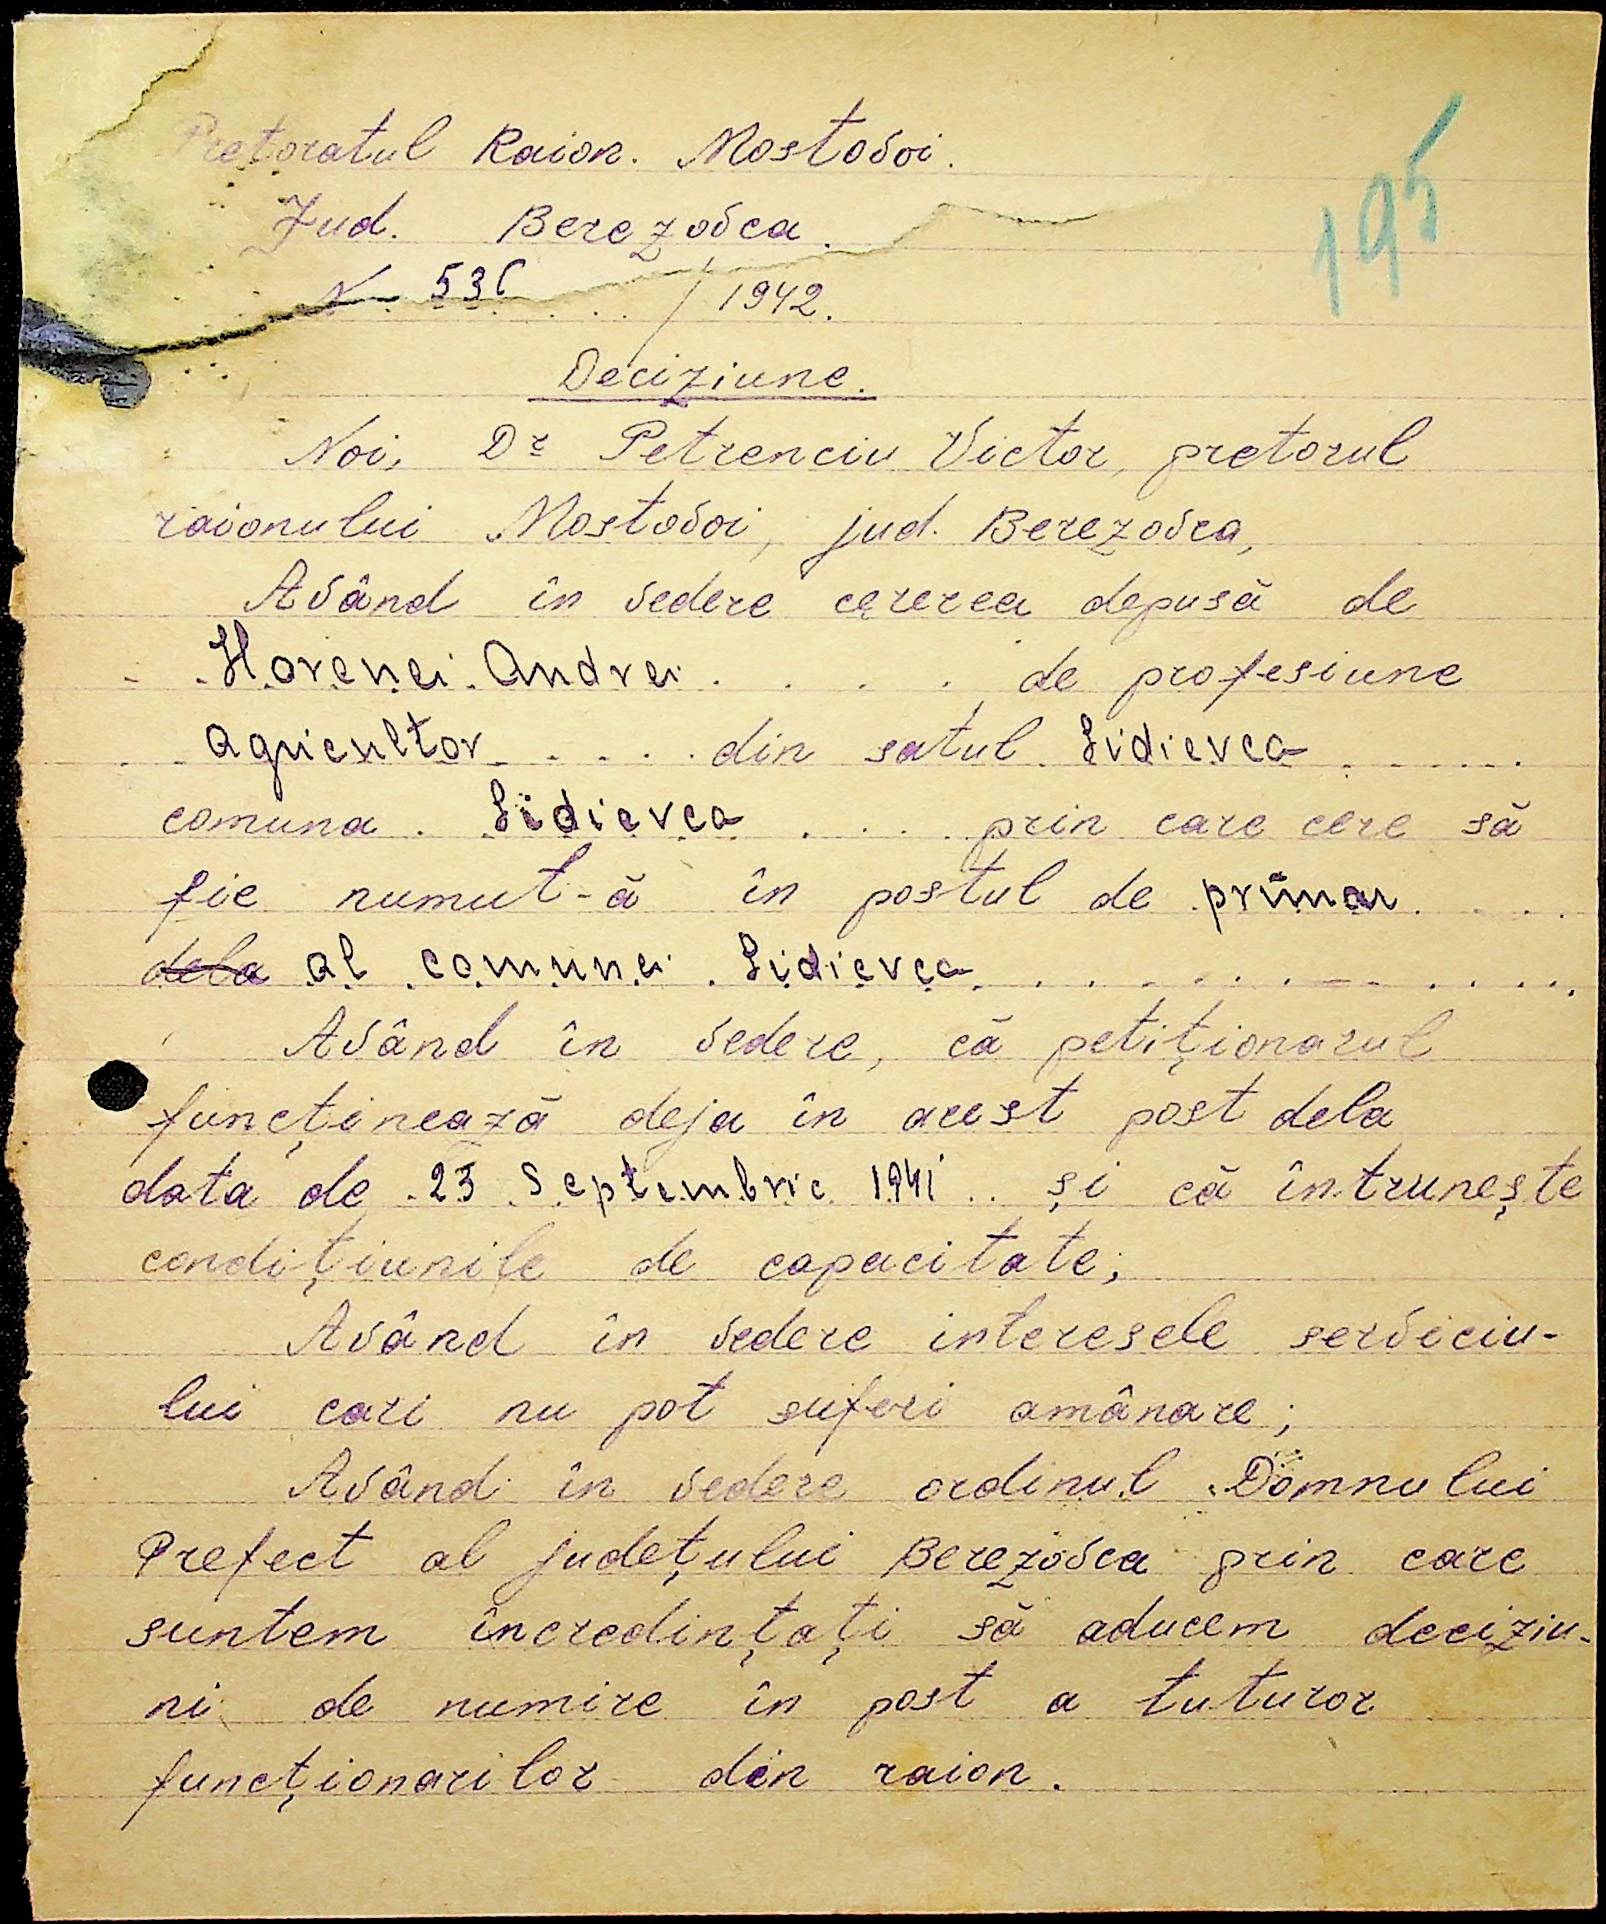 195
Pretoratul Raion. Mostovoi.
Jud. Berezovca.
N. 536 / 1942.
Deciziune.
Noi, Dr Petrenciu Victor, pretorul
raionului Mostovoi, jud. Berezovca,
Având în vedere cererea depusă de
Horenei Andrei . . . . de profesiune
agricultor . . . . din satul Lidievca . . . . . .
comuna . Lidievca . . . . prin care cere să
fie numut-ă în postul de primar . . . .
dela al comunei Lidievca . . . . . . . . . . . . .
Având în vedere, că petiționarul
funcținează deja în acest post dela
data de 23 Septembrie 1941 . . și că întrunește
condițiunile de capacitate;
Având în vedere interesele serviciu-
lui cari nu pot suferi amânare;
Având în vedere ordinul Domnului
Prefect al județului Berezovca prin care
suntem încredințați să aducem deciziu-
ni de numire în post a tuturor
funcționarilor din raion.